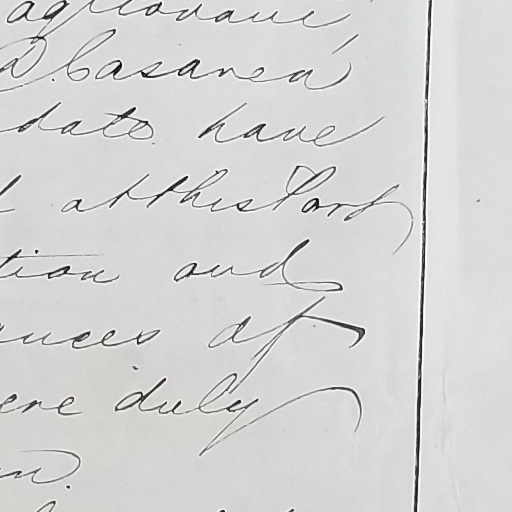 D. Casanea
date have
at this Port
tion and
ances of
ere duly